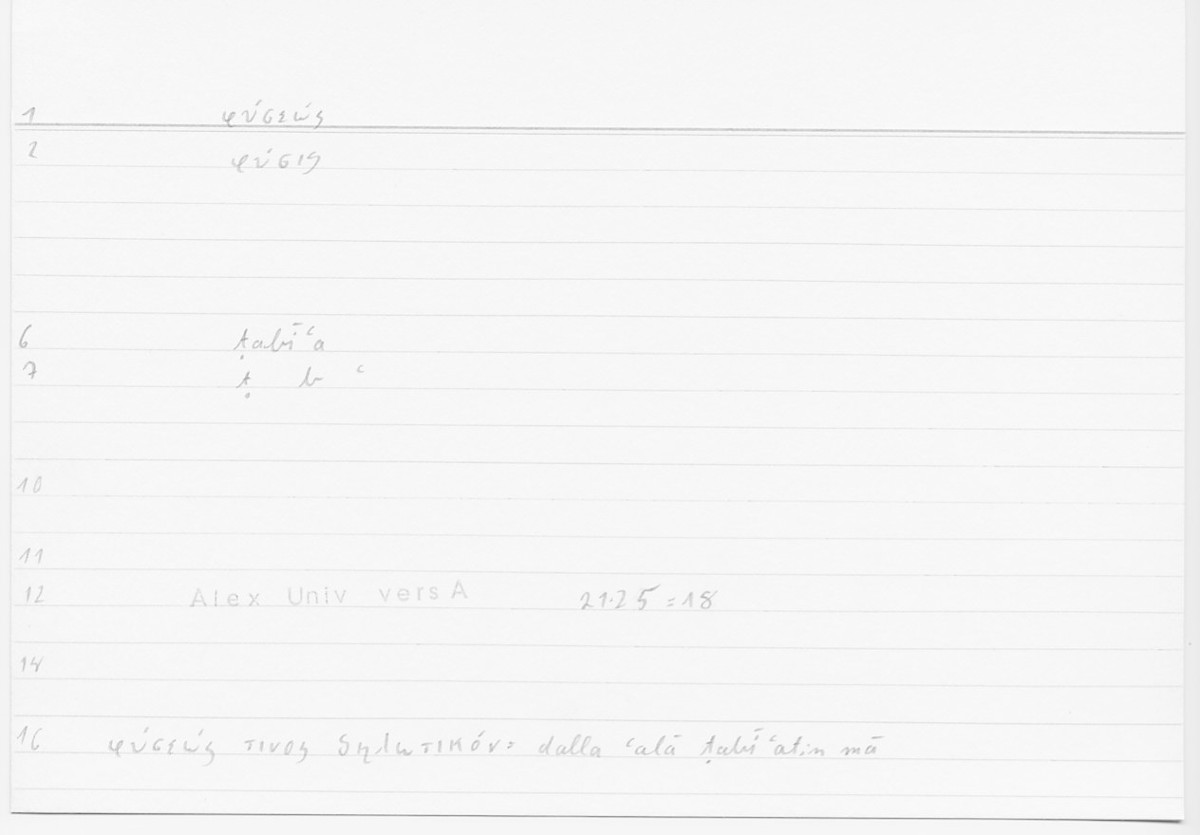 1 φύσεώς
2 φύσις
6 ṭabīʿa
7 ṭ b ʿ
10
11
12 Alex Univ vers A 21.25 = 18
14
16 φύσεώς τινος δηλωτικόν: dalla ʿalā ṭabīʿatin mā